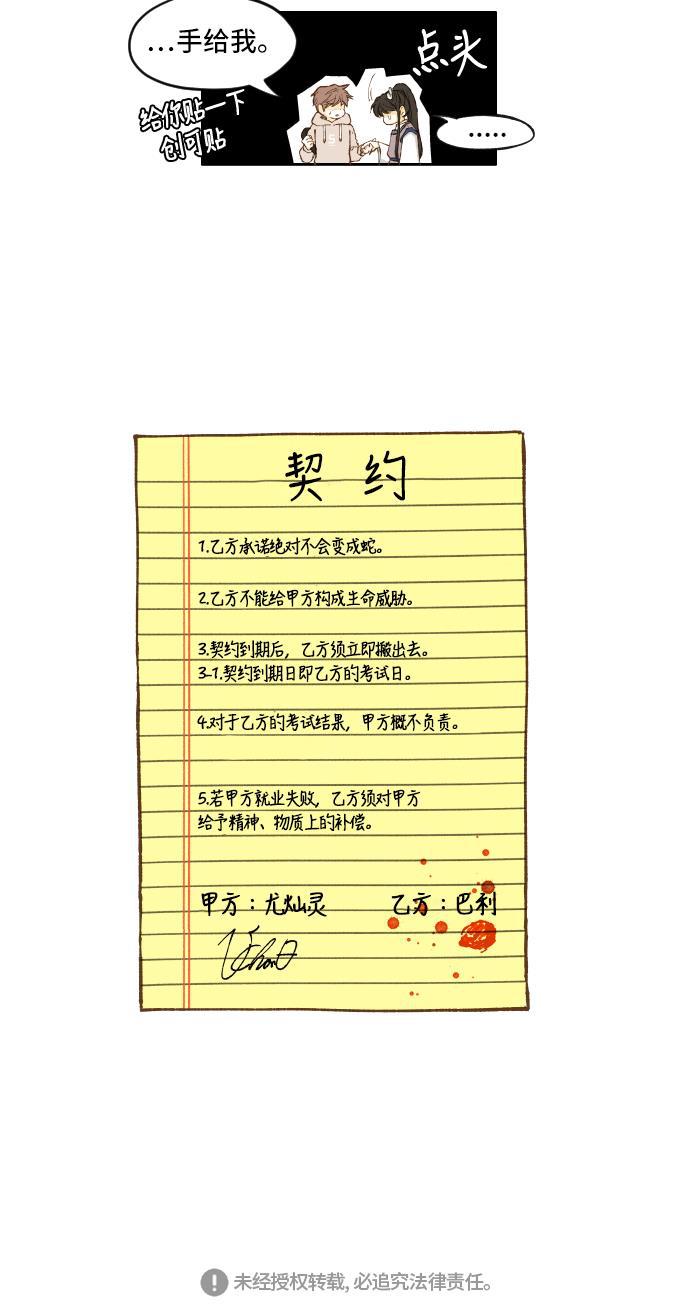 ...手给我。
点头
给你贴一下
创可贴
.....
S
契 约
1.乙方承诺绝对不会变成蛇。
2.乙方不能给甲方构成生命威胁。
3.契约到期后，乙方须立即搬出去。
3-1.契约到期日即乙方的考试日。
4.对于乙方的考试结果，甲方概不负责。
5.若甲方就业失败，乙方须对甲方
给予精神、物质上的补偿。
甲方：尤灿灵 乙方：巴利
! 未经授权转载, 必追究法律责任。